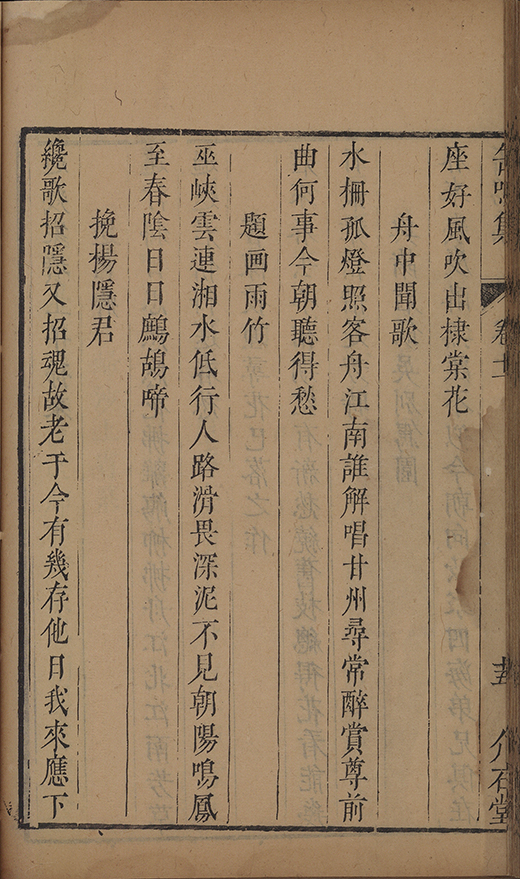 缶鳴集
卷十二
介石堂
座好風吹出棣棠花
舟中聞歌
水柵孤燈照客舟江南誰解唱甘州尋常醉賞尊前
曲何事今朝聽得愁
題画雨竹
巫峽雲連湘水低行人路滑畏深泥不見朝陽鳴鳳
至春陰日日鷓鴣啼
挽揚隱君
纔歌招隱又招魂故老于今有幾存他日我來應下